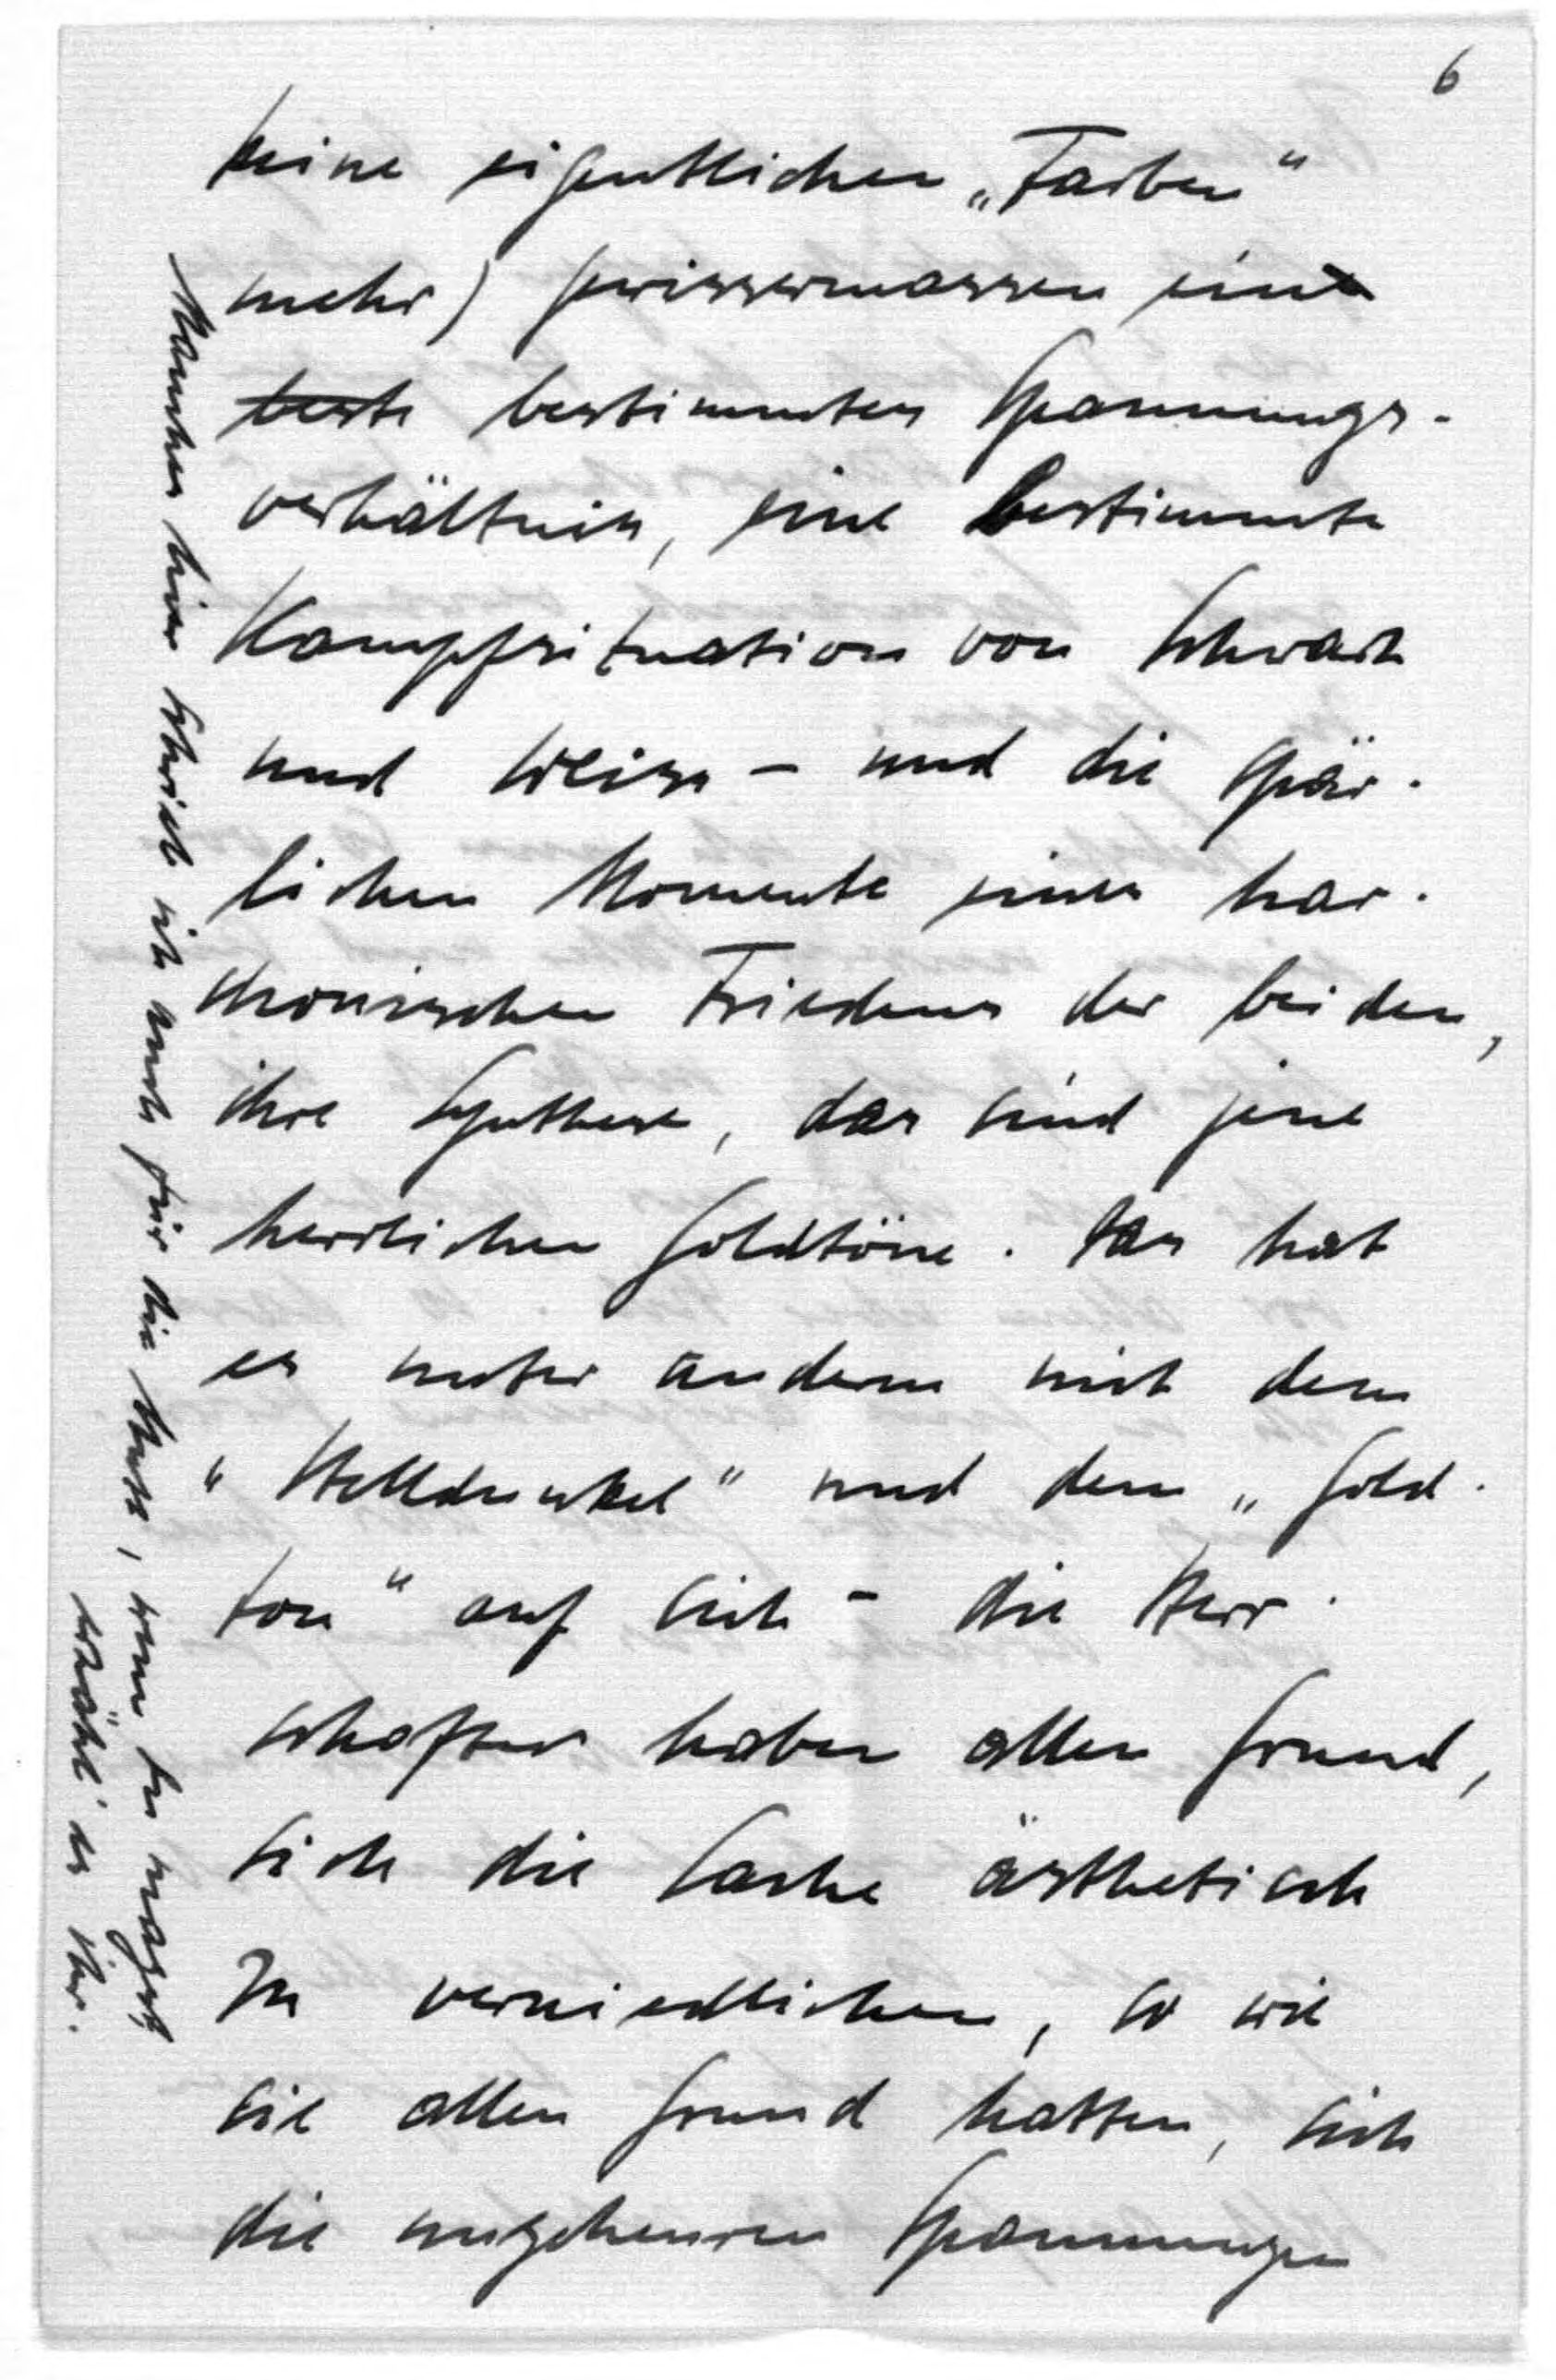 6
keine eigentlichen „Farben"
mehr) gewissermassen ein
beste bestimmtes Spannungs-
verhältnis, eine bestimmte
Kampfsituation von Schwarz
und Weiss – und die spär-
lichen Momente eines har-
monischen Friedens der beiden,
ihre Synthese, das sind jene
herrlichen Goldtöne. Das hat
es unter anderm mit dem
"Helldunkel" und dem „Gold-
ton" auf sich – die Herr-
schaften haben allen Grund,
sich die Sache ästhetisch
zu verniedlichen, so wie
sie allen Grund hatten, sich
die ungeheuren Spannungen
Manches hier schrieb ich auch für die, wenn Du magst,
erwähl' es ihr.